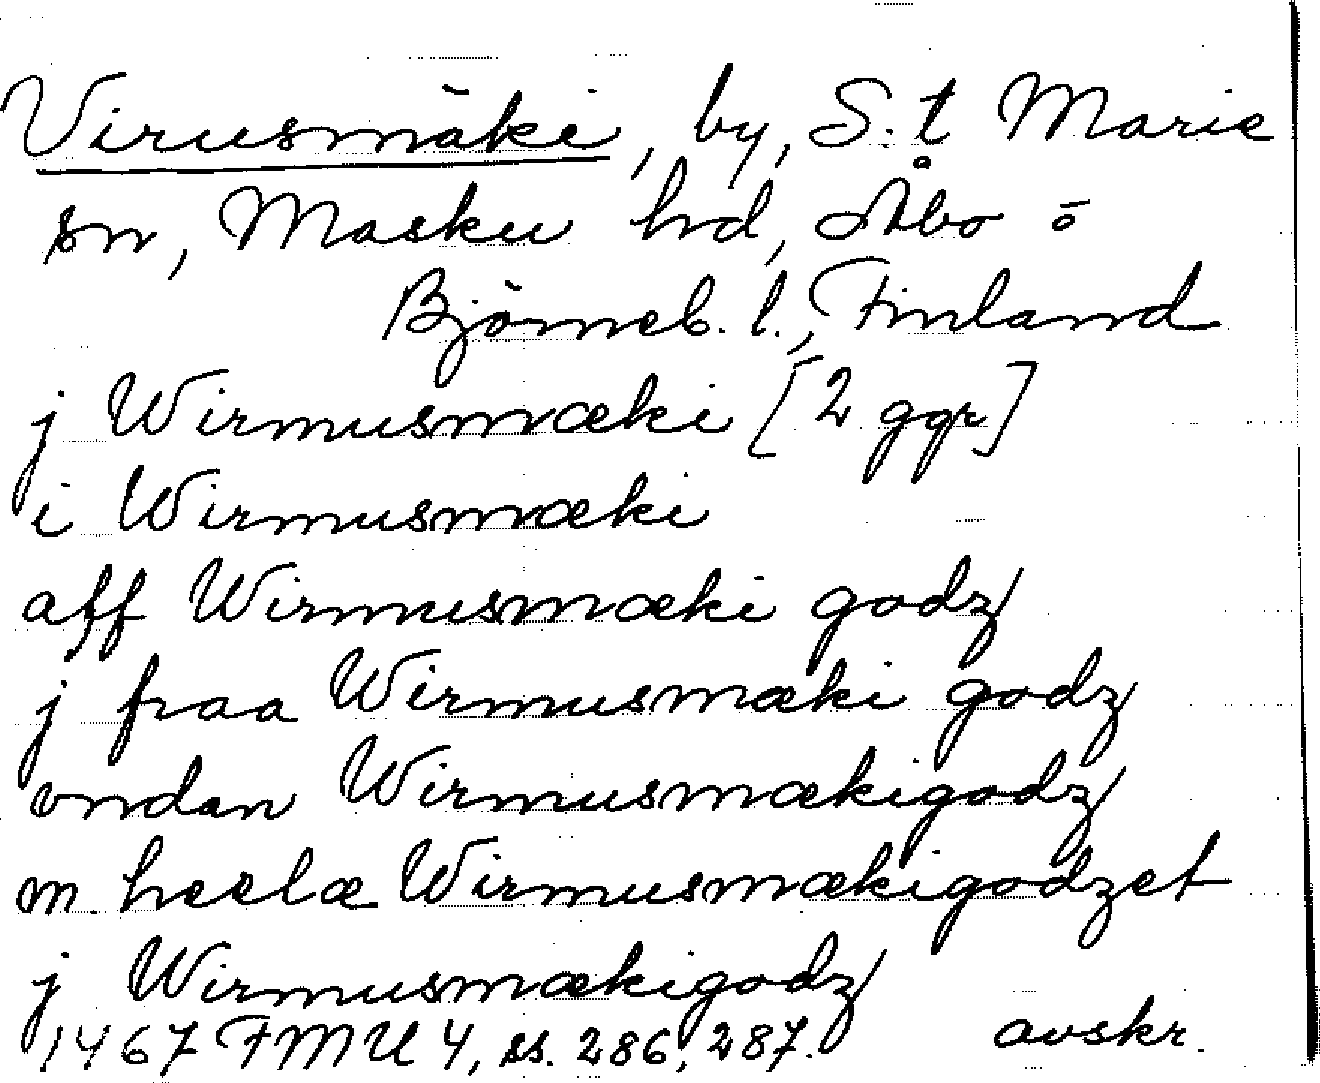 Virusmäki, by, S.t Marie
sn, Masku hd, Åbo o
Björneb. l., Finland
j Wirmusmæki [2 ggr]
i Wirmusmæki
aff Wirmusmæki godz
j fraa Wirmusmæki godz
vndan Wirmusmækigodz
m heelæ Wirmusmækigodzet
j Wirmusmækigodz
1467 FMU 4, ss. 286, 287. avskr.